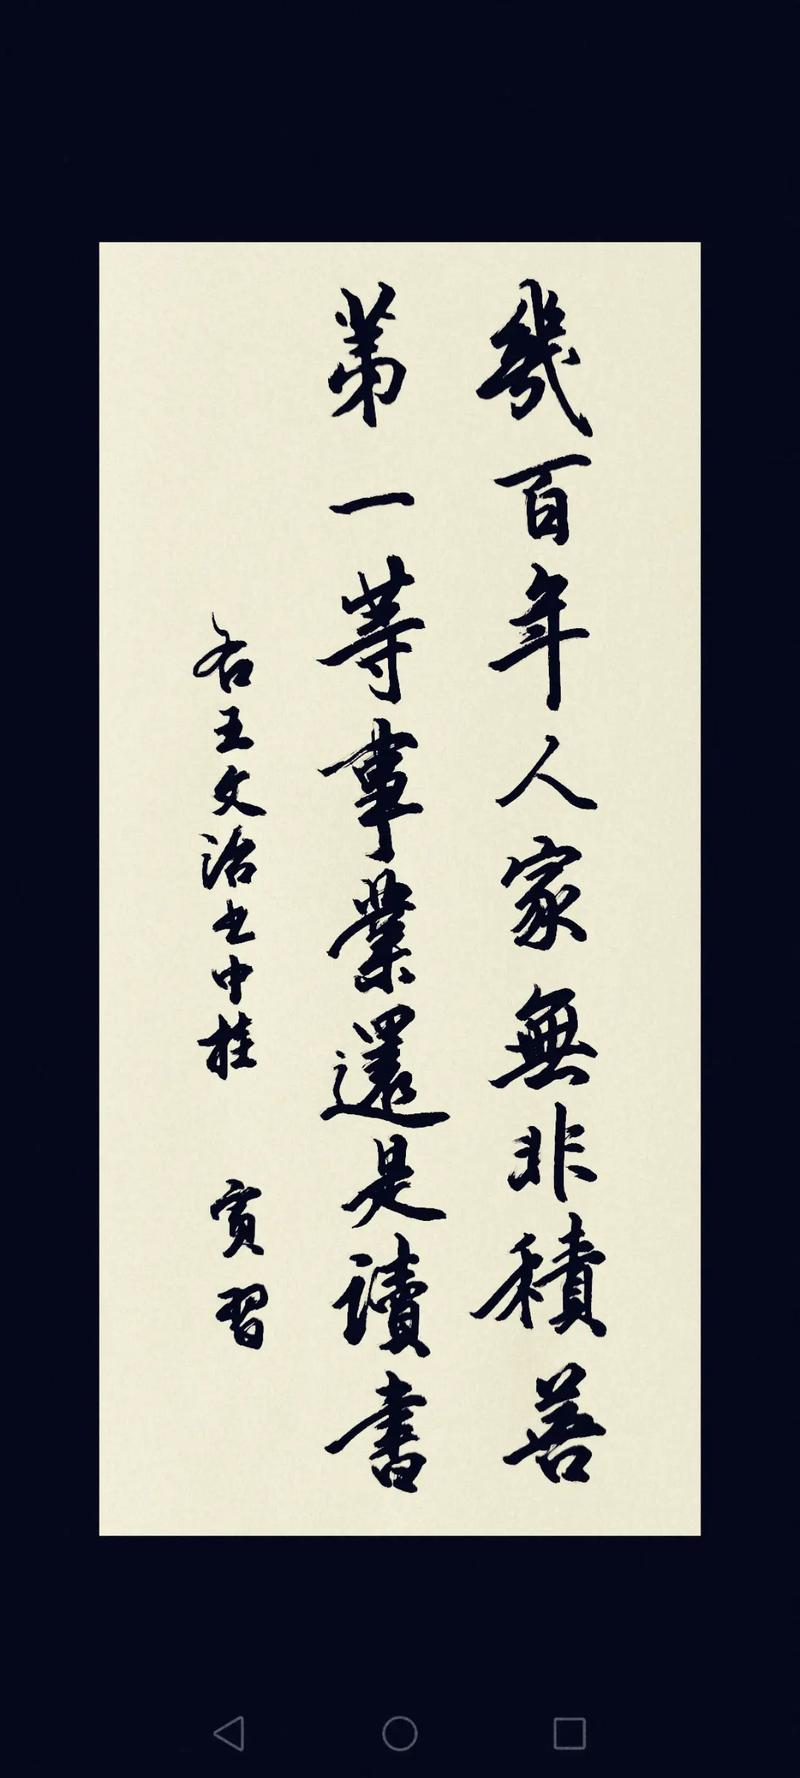 幾百年人家無非積善
第一等事業還是讀書
右王文治也中桂 賓習